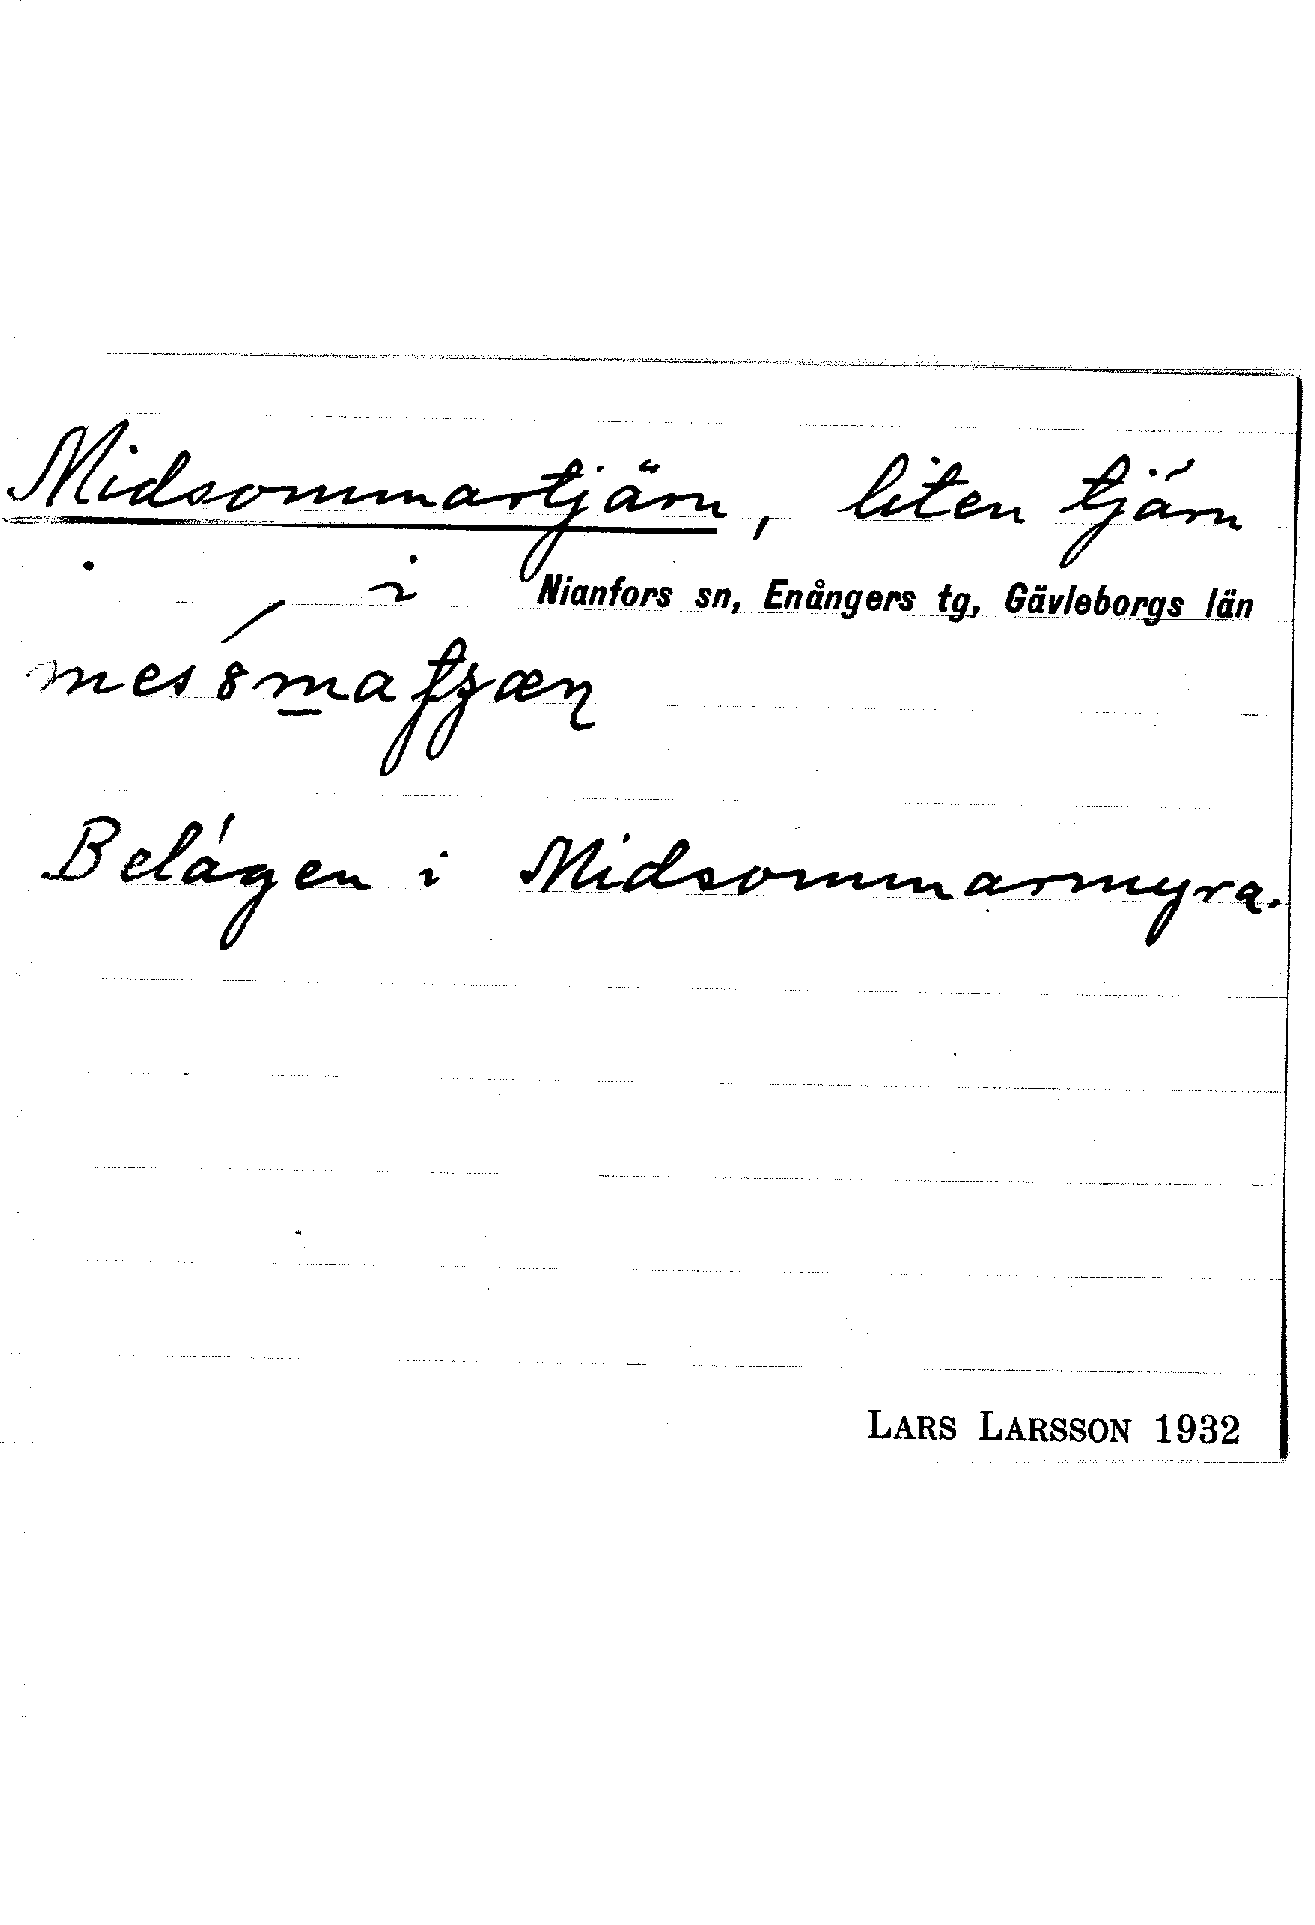 Midsommartjärn, liten tjärn
i Nianfors sn, Enångers tg, Gävleborgs län
Belägen i Midsommarmyra.
LARS LARSSON 1932